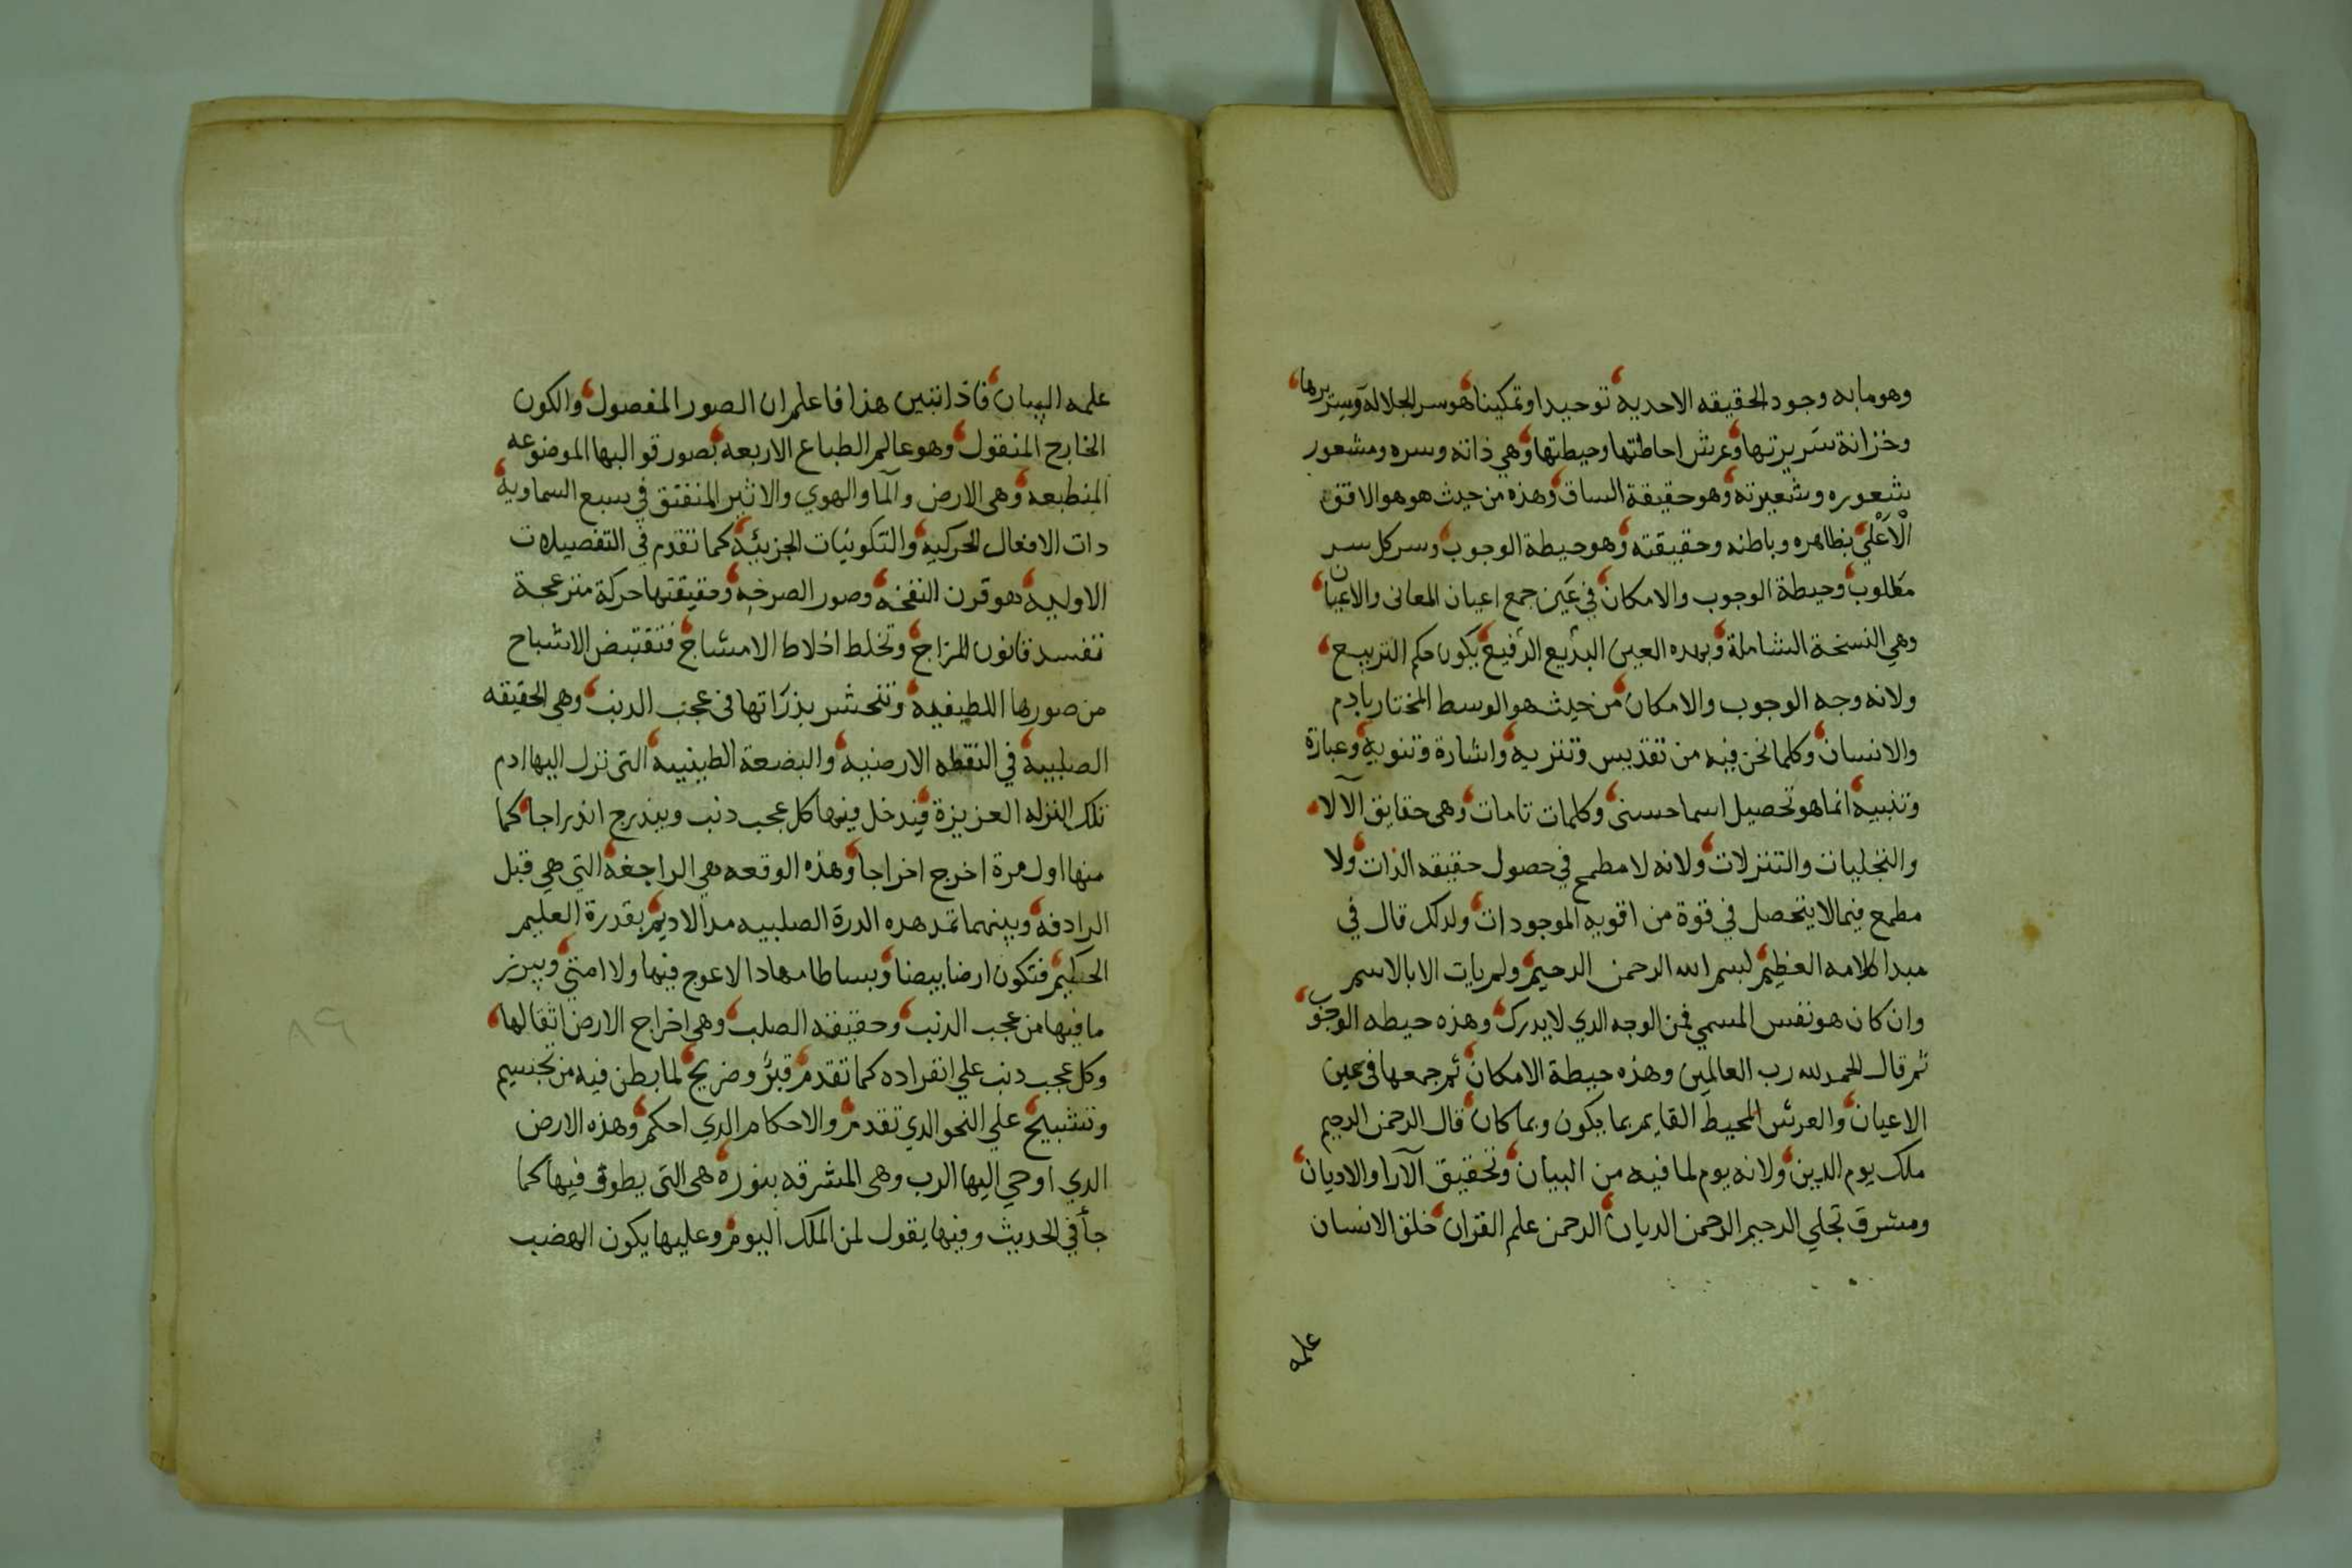 وهو ما به وجود الحقيقه الاحديه توحيدا وتمكينا هو سر الجلاله وسريرها
وخزانة سريرتها وعرش احاطتها وحيطتها وهي ذاته وسره ومشعور
شعوره وشعيرته وهو حقيقة الساق وهذه من حيث هو هو الافق
الاعلي بظاهره وباطنه وحقيقته وهو حيطة الوجوب وسر كل سر
مطلوب وحيطة الوجوب والامكان في عين جمع اعيان المعانى والاعيان
وهي النسخة الشاملة وبهده العين البديع الرفيع يكون حكم التربيع
ولانه وجه الوجوب والامكان من حيث هو الوسط المختار بادم
والانسان وكلما نحن فيه من تقديس وتنزيه واشارة وتنويه وعبارة
وتنبيه انما هو تحصيل اسما حسنى وكلمات تامات وهى حقايق الآلا
والتجليات والتنزلات ولانه لا مطمح في حصول حقيقه الذات ولا
مطمع فيما لا يتحصل في قوة من اقويه الموجودات ولدلك قال في
مبدا كلامه العظيم بسم الله الرحمن الرحيم ولم يات الا بالاسم
وان كان هو نفس المسمي فمن الوجه الدي لا يدرك وهذه حيطه الوجوب
ثم قال الحمد لله رب العالمين وهذه حيطة الامكان ثم جمعها في عين
الاعيان والعرش المحيط القايم بما يكون وبما كان قال الرحمن الرحيم
ملك يوم الدين ولانه يوم لما فيه من البيان وتحقيق الآرا والاديان
ومشرق تجلي الرحيم الرحمن الديان الرحمن علم القران خلق الانسان
علمه
علمه البيان فاذا تبين هذا فاعلم ان الصور المفصول والكون
الخارج المنقول وهو عالم الطباع الاربعه بصور قوالبها الموضوعه
المنطبعه وهى الارض والما والهوي والاثير المنفتق في سبع السماوية
دات الافعال الحركيه والتكوينات الجزيئية كما تقدم في التفصيلات
الاوليه هو قرن النفخه وصور الصرخه وحقيقتها حركة منزعجة
تفسد قانون المزاج وتخلط اخلاط الامشاج فتقتبض الاشباح
من صورها اللطيفيه وتنحشر بذراتها فى عجب الدنب وهي الحقيقه
الصلبيه في النقطه الارضيه والبضعة الطينيه التى نزل اليها ادم
تلك النزله العزيزة فيدخل فيها كل عجب دنب ويندرج اندراجا كما
منها اول مرة اخرج اخراجا وهذه الوقعه هي الراجفة التي هي قبل
الرادفه وبينهما تمد هده الدرة الصلبيه مد الاديم بقدرة العليم
الحكيم فتكون ارضا بيضا وبساطا مهادا لا عوج فيها ولا امتى ويبرز
ما فيها من عجب الدنب وحقيقه الصلب وهي اخراج الارض اثقالها
وكل عجب دنب علي انفراده كما تقدم قبر وضريح لما بطن فيه من تجسيم
وتشبيح علي النحو الدي تقدم والاحكام الدي احكم وهذه الارض
الدي اوحي اليها الرب وهى المشرقه بنوره هى التى يطوف فيها كما
جأ في الحديث وفيها يقول لمن الملك اليوم وعليها يكون الهضب
٨٩